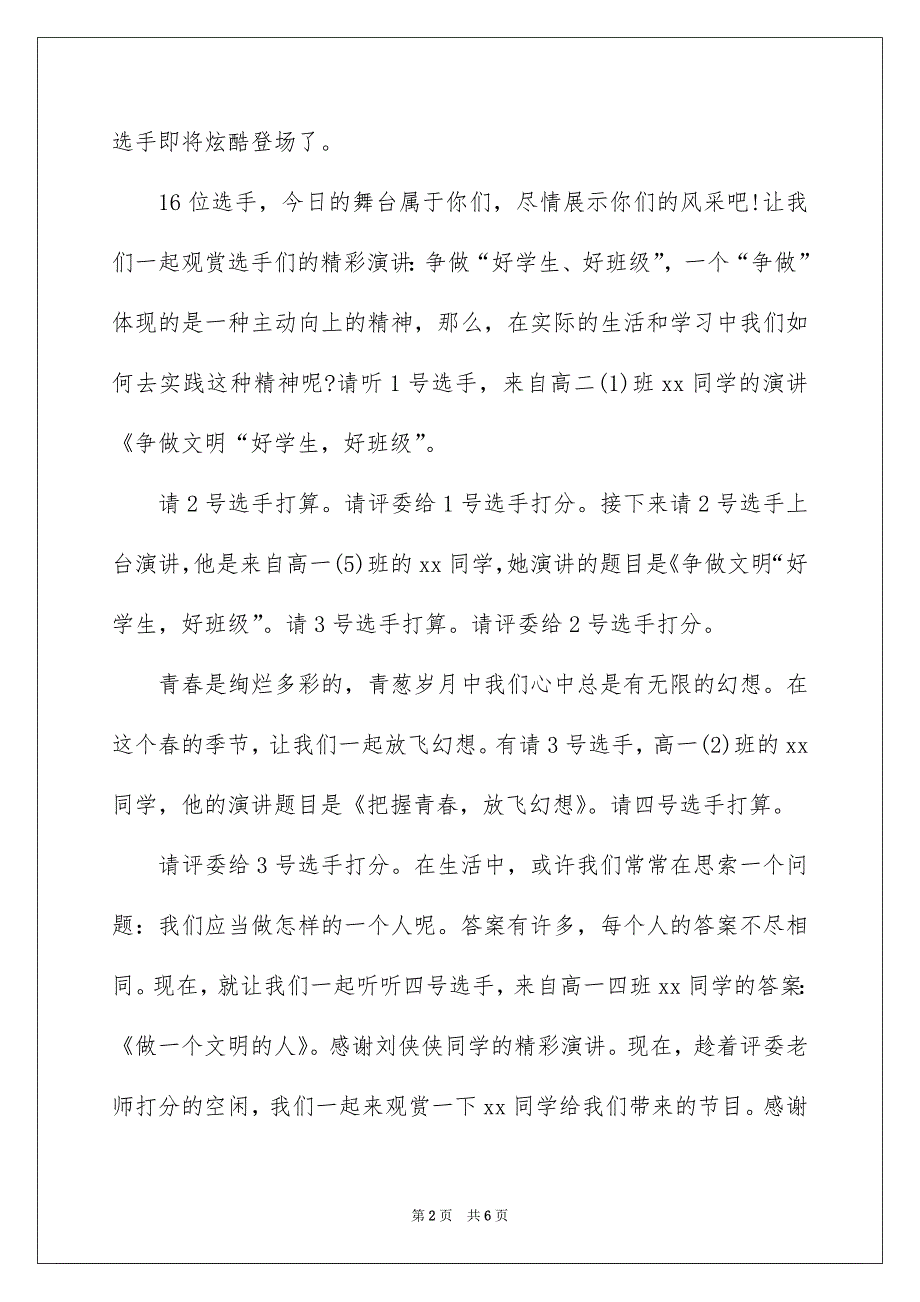 选手即将炫酷登场了。
16 位选手，今日的舞台属于你们，尽情展示你们的风采吧!让我
们一起观赏选手们的精彩演讲：争做“好学生、好班级”，一个“争做”
体现的是一种主动向上的精神，那么，在实际的生活和学习中我们如
何去实践这种精神呢?请听 1 号选手，来自高二(1)班 xx 同学的演讲
《争做文明“好学生，好班级”。
请 2 号选手打算。请评委给 1 号选手打分。接下来请 2 号选手上
台演讲，他是来自高一(5)班的 xx 同学，她演讲的题目是《争做文明“好
学生，好班级”。请 3 号选手打算。请评委给 2 号选手打分。
青春是绚烂多彩的，青葱岁月中我们心中总是有无限的幻想。在
这个春的季节，让我们一起放飞幻想。有请 3 号选手，高一(2)班的 xx
同学，他的演讲题目是《把握青春，放飞幻想》。请四号选手打算。
请评委给 3 号选手打分。在生活中，或许我们常常在思索一个问
题：我们应当做怎样的一个人呢。答案有许多，每个人的答案不尽相
同。现在，就让我们一起听听四号选手，来自高一四班 xx 同学的答案：
《做一个文明的人》。感谢刘侠侠同学的精彩演讲。现在，趁着评委老
师打分的空闲，我们一起来观赏一下 xx 同学给我们带来的节目。感谢
第 2 页 共 6 页